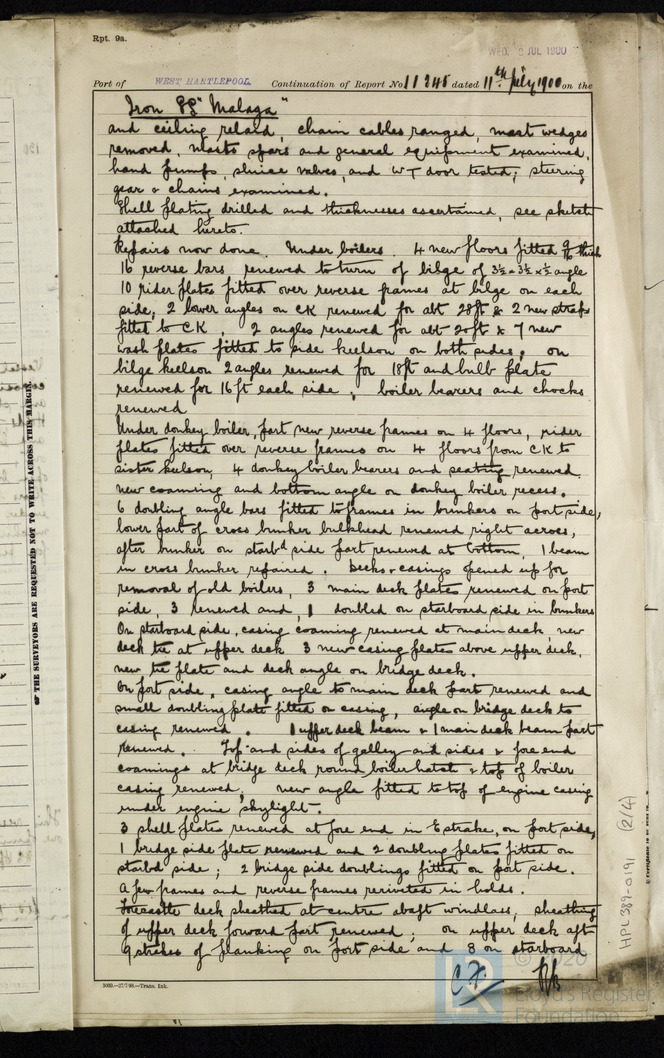 Rpt. 9a.
WED. JUL 1900
Port of WEST HARTLEPOOL Continuation of Report No 11245 dated 11th July 1900 on the
Iron SS "Malaga"
and ceiling relaid, chain cables ranged, mast wedges
removed, masts spars and general equipment examined,
hand pumps, sluice valves, and WT door tested; steering
gear & chains examined.
Shell plating drilled and thicknesses ascertained, see sketch
attached hereto.
Repairs now done. Under boilers. 4 new floors fitted 9/16 thick
16 reverse bars renewed to turn of bilge of 3½ x 3½ x ½ angle
10 rider plates fitted over reverse frames at bilge on each
side, 2 lower angles on CK renewed for abt 28ft & 2 new straps
fitted to CK, 2 angles renewed for abt 20ft & 7 new
wash plates fitted to side keelson on both sides, on
bilge keelson 2 angles renewed for 18ft and bulb plate
renewed for 16ft each side, boiler bearers and chocks
renewed
Under donkey boiler, part new reverse frames on 4 floors, rider
plates fitted over reverse frames on 4 floors from CK to
sister keelson, 4 donkey boiler bearers and seating renewed.
new coaming and bottom angle on donkey boiler recess.
6 doubling angle bars fitted to frames in bunkers on port side,
lower part of cross bunker bulkhead renewed right across,
after bunker on starbd side part renewed at bottom, 1 beam
in cross bunker repaired. Decks & casings opened up for
removal of old boilers, 3 main deck plates renewed on port
side, 3 renewed and 1 doubled on starboard side in bunkers
On starboard side, casing coaming renewed at main deck, new
deck tie at upper deck 3 new casing plates above upper deck.
new tie plate and deck angle on bridge deck.
On port side, casing angle to main deck part renewed and
small doubling plate fitted on casing, angle on bridge deck to
casing renewed. 1 upper deck beam & 1 main deck beam part
renewed. Top and sides of galley and sides & fore end
coamings at bridge deck round boiler hatch & top of boiler
casing renewed, new angle fitted to top of engine casing
under engine skylight.
3 shell plates renewed at fore end in E strake, on port side,
1 bridge side plate renewed and 2 doubling plates fitted on
starbd side; 2 bridge side doublings fitted on port side.
A few frames and reverse frames reriveted in holds.
Forecastle deck sheathed at centre abaft windlass, sheathing
of upper deck forward part renewed; on upper deck aft
9 strakes of planking on port side and 8 on starboard
5000.—27/7/98.—Trans. Ink.
OF THE SURVEYORS ARE REQUESTED NOT TO WRITE ACROSS THIS MARGIN.
HPL389-0191 (2/4)
© 2020
Lloyd's Register
Foundation